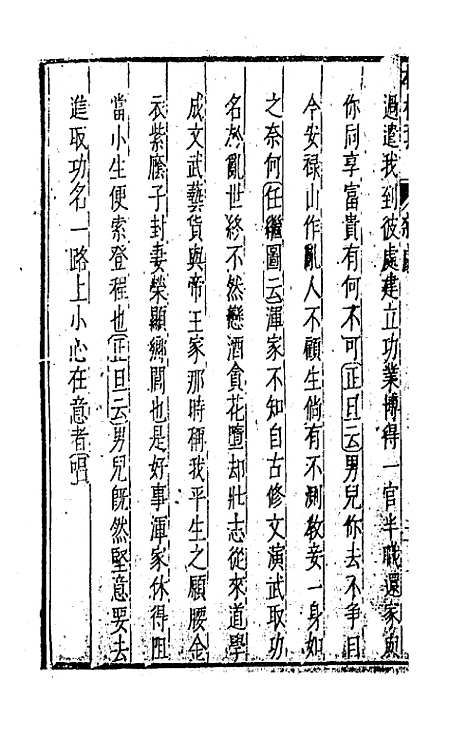 過遣我到彼處建立功業博得一官半職還家與
你同享富貴有何不可正旦云男兒你去不爭目
今安禄山作亂人不顧生倘有不測教妾一身如
之奈何任繼圖云渾家不知自古修文演武取功
名於亂世終不然戀酒貪花墮却壯志從來道學
成文武藝貨與帝王家那時稱我平生之願腰金
衣紫廕子封妻榮顯鄉閭也是好事渾家休得阻
當小生便索登程也正旦云男兒旣然堅意要去
進取功名一路上小心在意者唱